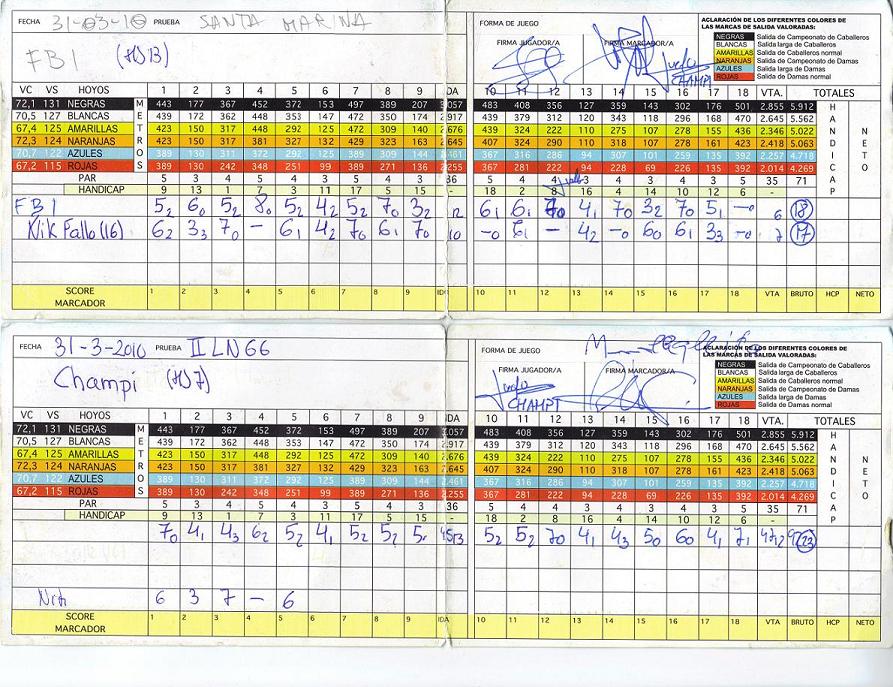 FECHA 31-03-10 PRUEBA SANTA MARINA FORMA DE JUEGO
FBI (HJ13)
FIRMA JUGADOR/A FIRMA MARCADOR/A
CHAMPI
ACLARACIÓN DE LOS DIFERENTES COLORES DE LAS MARCAS DE SALIDA VALORADAS:
NEGRAS Salida de Campeonato de Caballeros
BLANCAS Salida larga de Caballeros
AMARILLAS Salida de Caballeros normal
NARANJAS Salida de Campeonato de Damas
AZULES Salida larga de Damas
ROJAS Salida de Damas normal
VC VS HOYOS METROS 1 2 3 4 5 6 7 8 9 IDA 10 11 12 13 14 15 16 17 18 VTA. TOTALES
72,1 131 NEGRAS 443 177 367 452 372 153 497 389 207 3.057 483 408 356 127 359 143 302 176 501 2.855 5.912
70,5 127 BLANCAS 439 172 362 448 353 147 472 350 174 2.917 439 379 312 120 343 118 296 168 470 2.645 5.562
67,4 125 AMARILLAS 423 150 317 448 292 125 472 309 140 2.676 423 324 222 110 275 107 278 155 436 2.346 5.022
72,3 124 NARANJAS 423 150 317 381 327 132 429 323 163 2.645 407 324 290 110 318 107 278 161 423 2.418 5.063
70,7 122 AZULES 389 130 311 372 292 125 389 309 144 2.461 367 316 286 94 307 101 259 135 392 2.257 4.718
67,2 115 ROJAS 389 130 242 348 251 99 389 271 136 2.255 367 281 222 94 228 69 226 135 392 2.014 4.269
PAR 5 3 4 5 4 3 5 4 3 36 5 4 4 3 4 3 4 3 5 35 71
HANDICAP 9 13 1 7 3 11 17 5 15 - 18 2 8 16 4 14 10 12 6 -
HANDICAP NETO
FBI 5 2 6 0 5 2 8 0 5 2 4 2 5 2 7 0 3 2 12 6 1 6 1 7 0 4 1 7 0 3 2 7 0 5 1 -0 6 18
Klik Fallo (16) 6 2 3 3 7 0 - 6 1 4 2 7 0 6 1 7 0 10 -0 6 1 - 4 2 -0 6 0 6 1 3 3 -0 7 17
SCORE MARCADOR 1 2 3 4 5 6 7 8 9 IDA 10 11 12 13 14 15 16 17 18 VTA BRUTO HCP NETO
FECHA 31-3-2010 PRUEBA II LN66 FORMA DE JUEGO
Champi (HJ7)
FIRMA JUGADOR/A FIRMA MARCADOR/A
CHAMPI
ACLARACIÓN DE LOS DIFERENTES COLORES DE LAS MARCAS DE SALIDA VALORADAS:
NEGRAS Salida de Campeonato de Caballeros
BLANCAS Salida larga de Caballeros
AMARILLAS Salida de Caballeros normal
NARANJAS Salida de Campeonato de Damas
AZULES Salida larga de Damas
ROJAS Salida de Damas normal
VC VS HOYOS METROS 1 2 3 4 5 6 7 8 9 IDA 10 11 12 13 14 15 16 17 18 VTA. TOTALES
72,1 131 NEGRAS 443 177 367 452 372 153 497 389 207 3.057 483 408 356 127 359 143 302 176 501 2.855 5.912
70,5 127 BLANCAS 439 172 362 448 353 147 472 350 174 2.917 439 379 312 120 343 118 296 168 470 2.645 5.562
67,4 125 AMARILLAS 423 150 317 448 292 125 472 309 140 2.676 423 324 222 110 275 107 278 155 436 2.346 5.022
72,3 124 NARANJAS 423 150 317 381 327 132 429 323 163 2.645 407 324 290 110 318 107 278 161 423 2.418 5.063
70,7 122 AZULES 389 130 311 372 292 125 389 309 144 2.461 367 316 286 94 307 101 259 135 392 2.257 4.718
67,2 115 ROJAS 389 130 242 348 251 99 389 271 136 2.255 367 281 222 94 228 69 226 135 392 2.014 4.269
PAR 5 3 4 5 4 3 5 4 3 36 5 4 4 3 4 3 4 3 5 35 71
HANDICAP 9 13 1 7 3 11 17 5 15 - 18 2 8 16 4 14 10 12 6 -
HANDICAP NETO
7 0 4 1 4 3 6 2 5 2 4 1 5 2 5 2 5 5 2 5 2 7 0 4 1 4 3 5 0 6 0 4 1 7 1 23
6 3 7 - 6
SCORE MARCADOR 1 2 3 4 5 6 7 8 9 IDA 10 11 12 13 14 15 16 17 18 VTA BRUTO HCP NETO